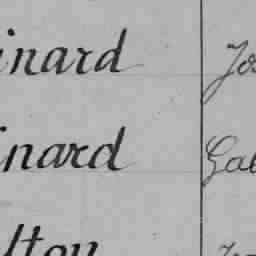 inard Jos
inard Gab
lton